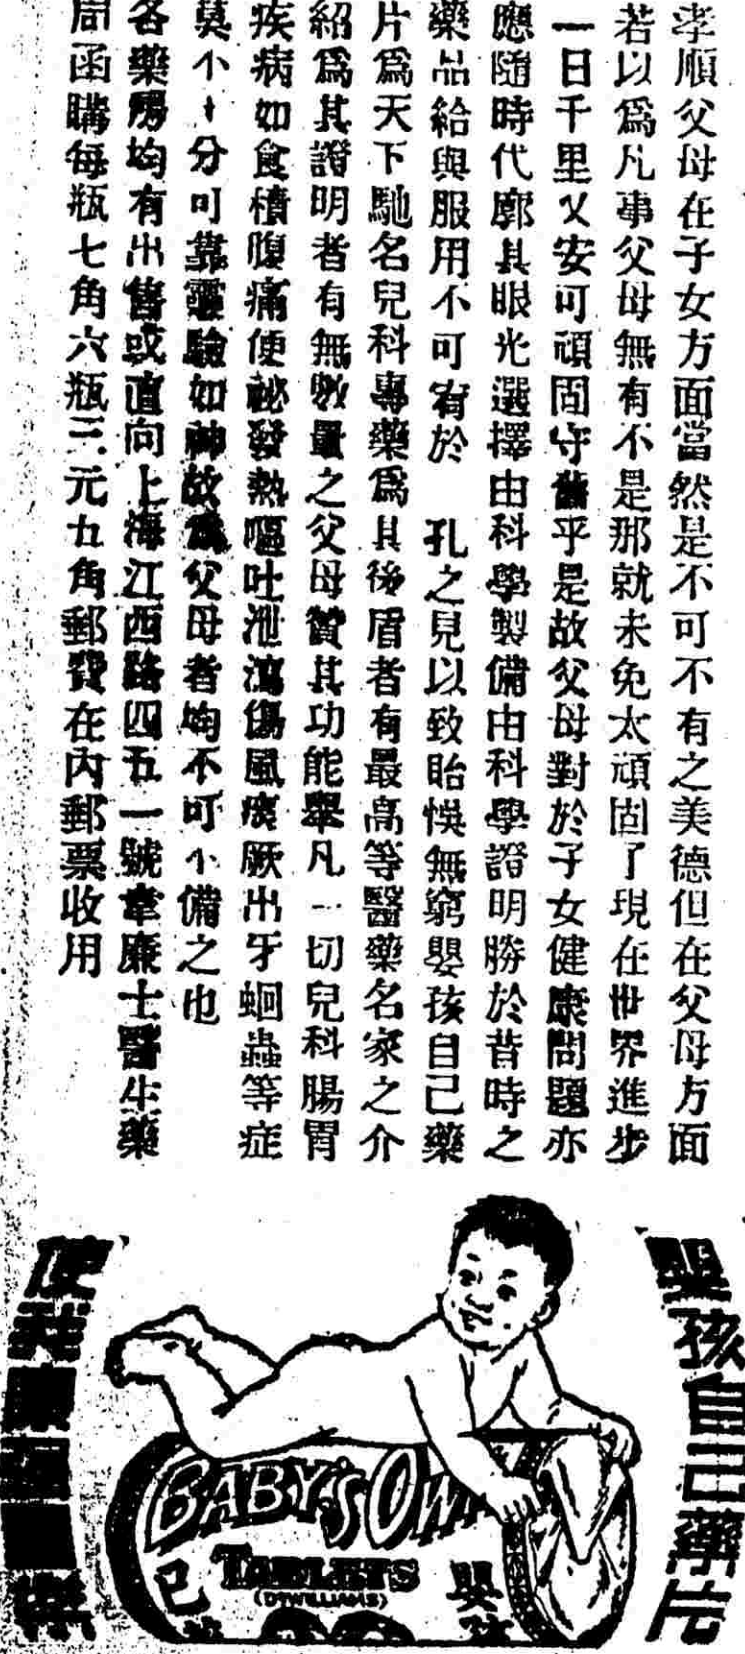 孝順父母在子女方面當然是不可不有之美德但在父母方面
若以爲凡事父母無有不是那就未免太頑固了現在世界進步
一日千里又安可頑固守舊乎是故父母對於子女健康問題亦
應隨時代廓其眼光選擇由科學製備由科學證明勝於昔時之
藥品給與服用不可宥於 孔之見以致貽悞無窮嬰孩自己藥
片爲天下馳名兒科專藥爲其後盾者有最高等醫藥名家之介
紹爲其證明者有無數量之父母贊其功能舉凡一切兒科腸胃
疾病如食積腹痛便祕發熱嘔吐泄瀉傷風痰厥出牙蛔蟲等症
莫不十分可靠靈驗如神故爲父母者均不可不備之也
各藥房均有出售或直向上海江西路四五一號韋廉士醫生藥
局函購每瓶七角六瓶三元九角郵費在內郵票收用
嬰孩自己藥片
使我康強快樂
BABY'S OWN
TABLETS
(DR WILLIAMS)
嬰孩
己